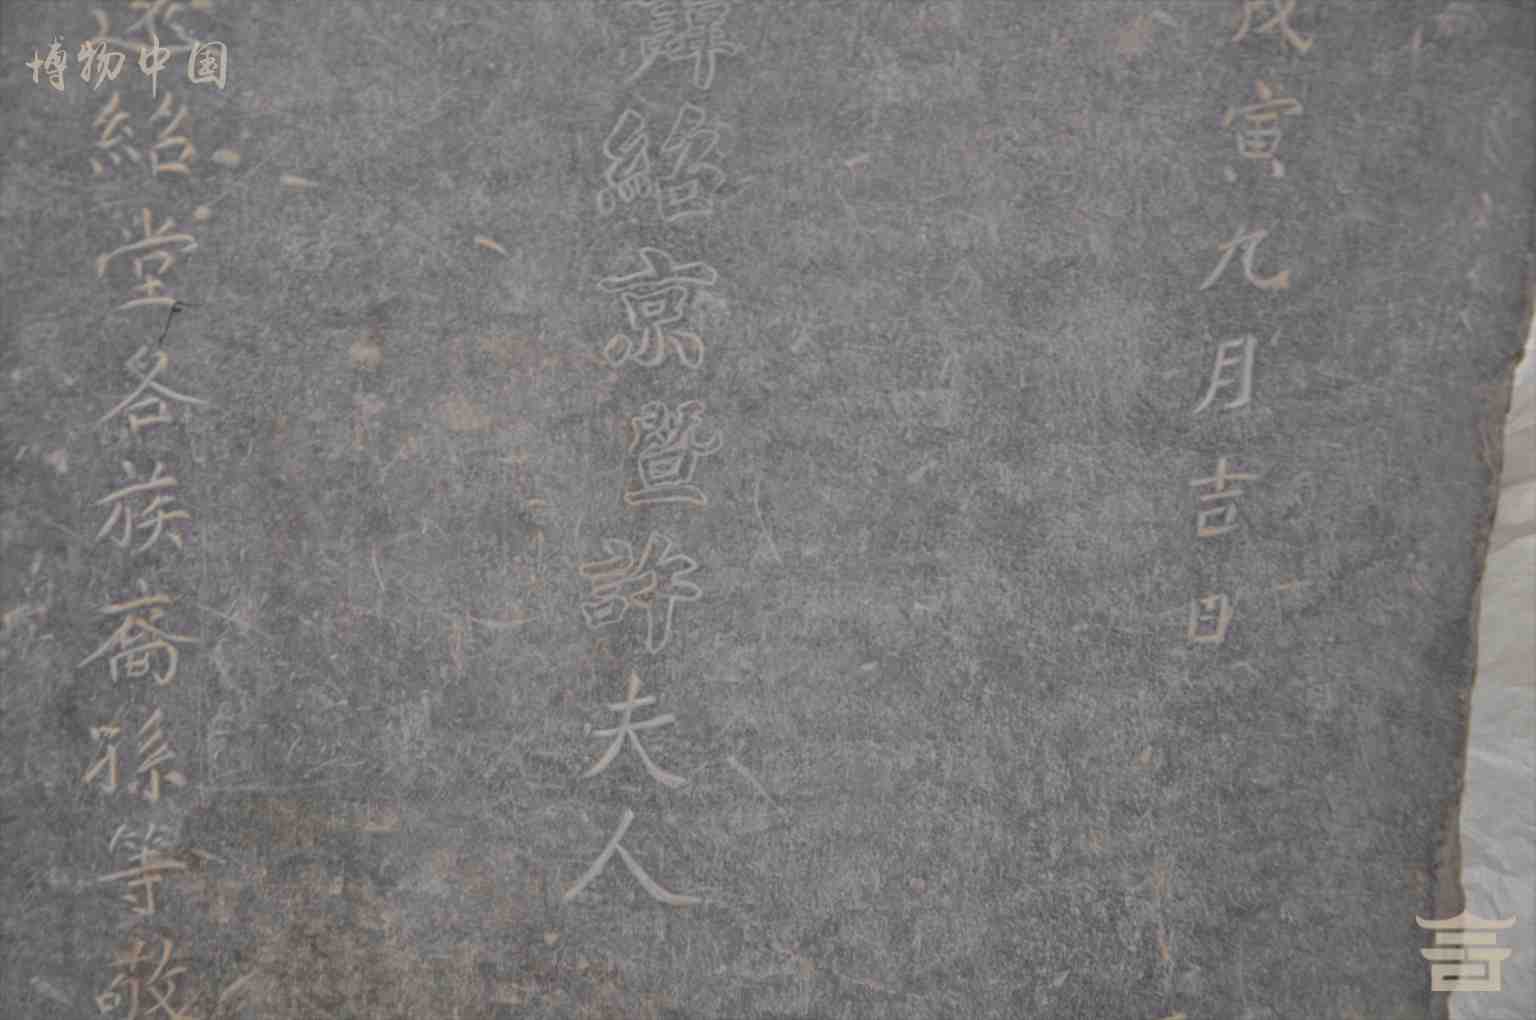 博物中国
戊寅九月吉日
諱紹京暨許夫人
紹堂各族裔孫等敬